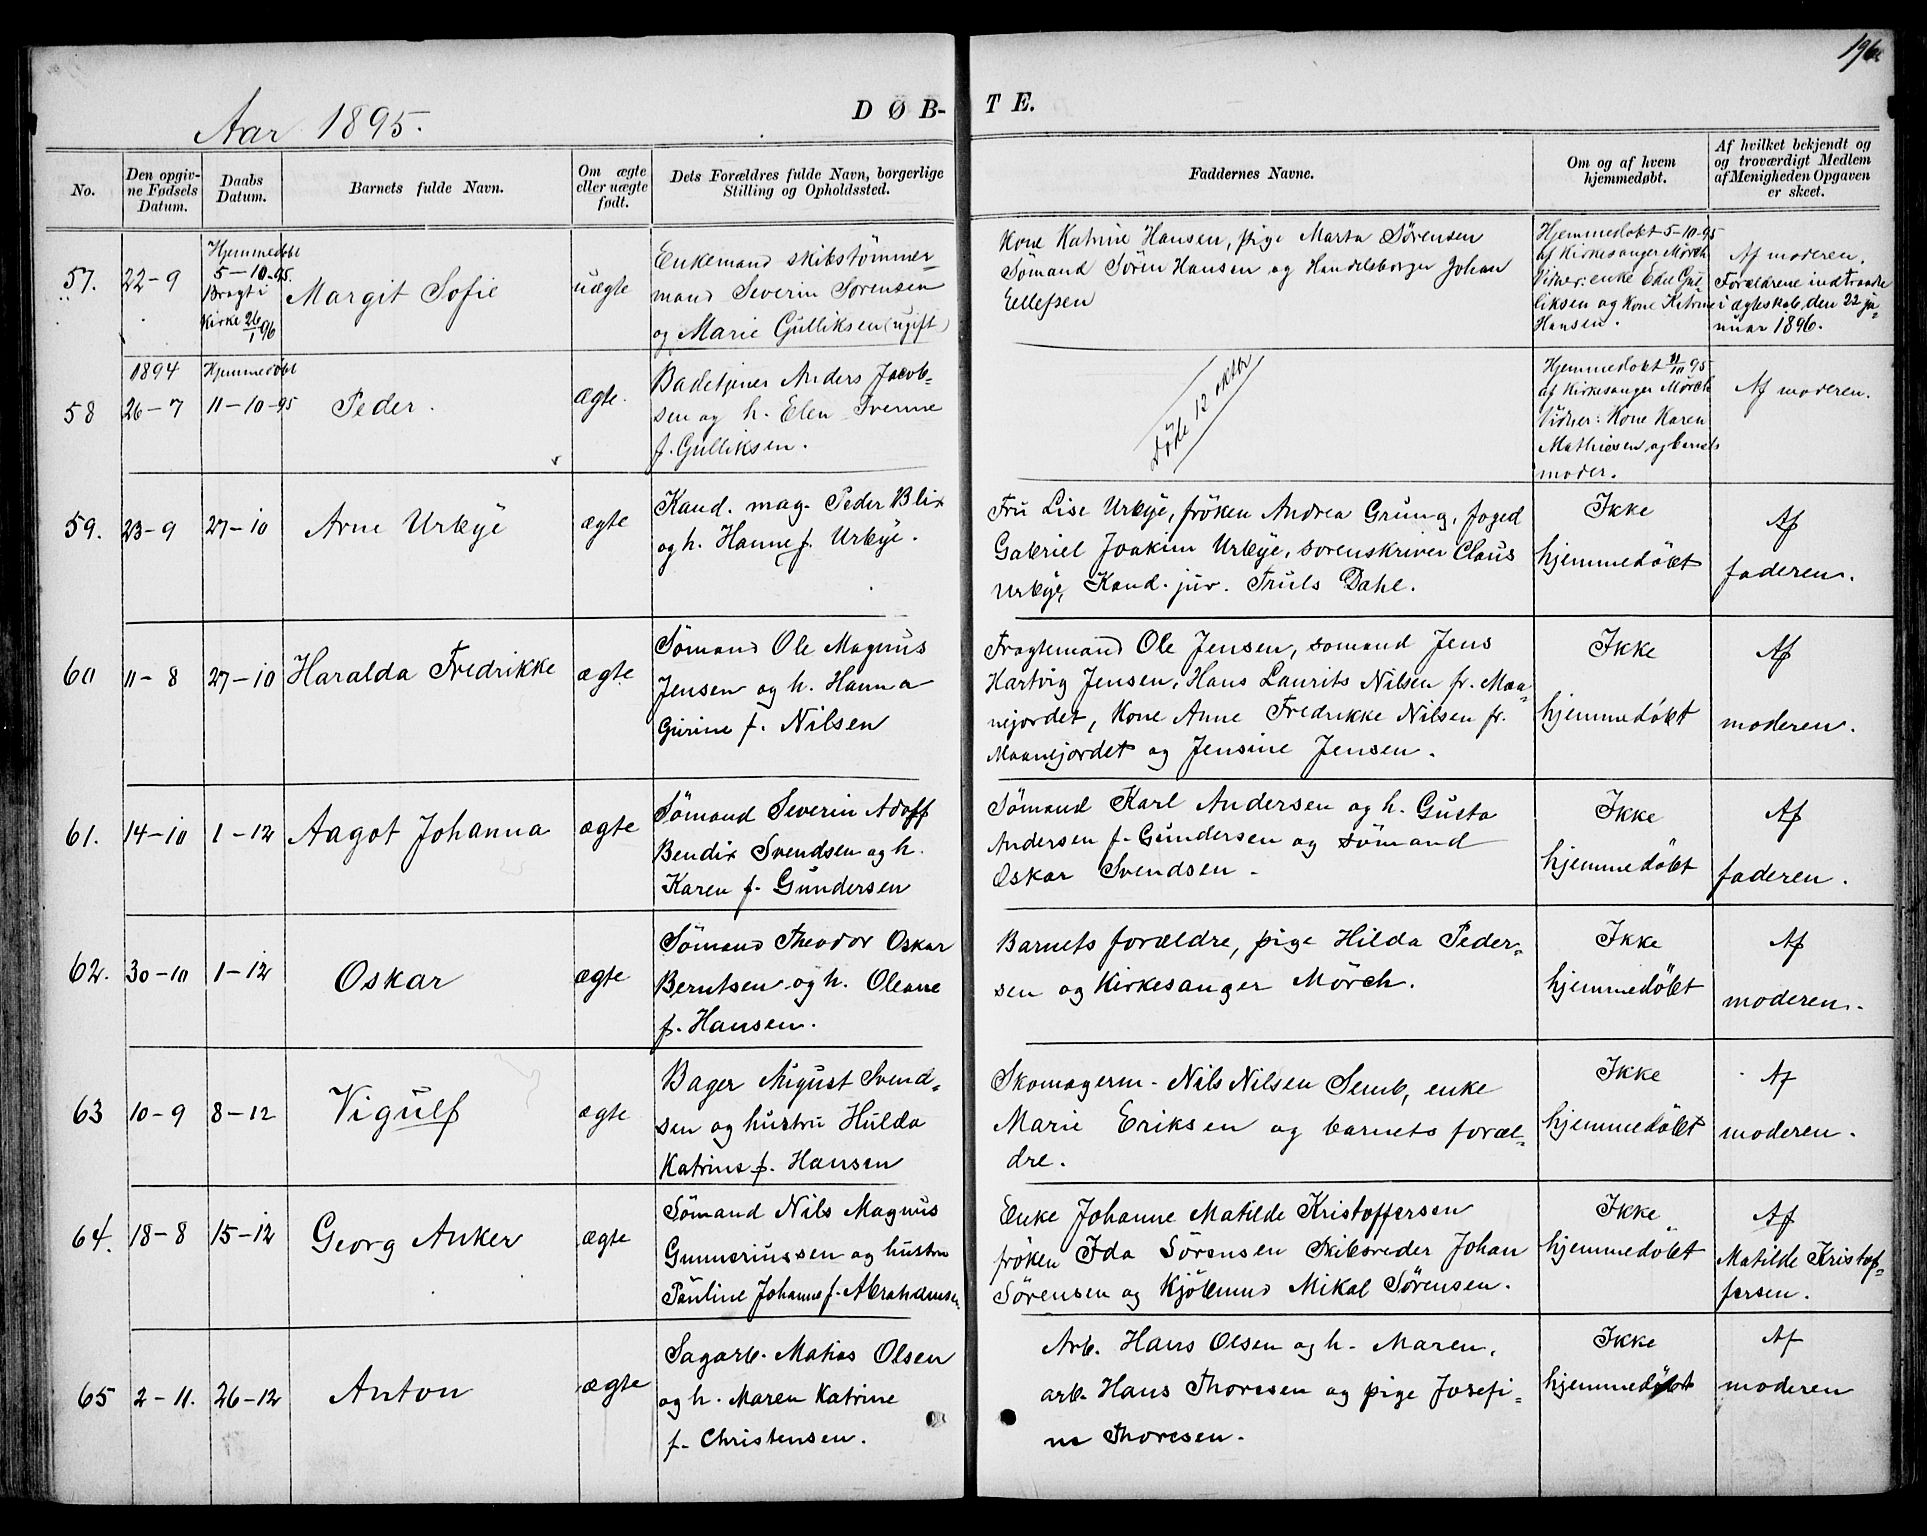 196
Aar 1895.
DØB-
TE.
No.
Den opgiv-
ne Fødsels
Datum.
Daabs
Datum.
Barnets fulde Navn.
Om ægte
eller uægte
født.
Dets Forældres fulde Navn, borgerlige
Stilling og Opholdssted.
Faddernes Navne.
Om og af hvem
hjemmedøbt.
Af hvilket bekjendt og
og troværdigt Medlem
af Menigheden Opgaven
er skeet.
57.
22-9
Hjemmedøbt
5-10-95.
Bragt i
Kirke 26/1 96
Margit Sofie
uægte
Enkemand skibstømmer-
mand Severin Sørensen
og Marie Gulliksen (ugift)
Kone Katrine Hansen, pige Marta Sørensen
Sømand Søren Hansen og Handelsborger Johan
Ellefsen
Hjemmedøbt 5-10-95
af Kirkesanger Mørch
Vidner: enke Edle Gul
liksen og Kone Katrine
Hansen.
Af moderen.
Forældrene indtraadte
i ægteskab den 22 ja-
nuar 1896.
58
1894
26-7
Hjemmedøbt
11-10-95
Peder.
Ægte.
Badetjener Anders Jacob-
sen og h. Elen
f. Gulliksen.
Døde 12 oktbr
Hjemmedøbt 11/10 95
af Kirkesanger Mørch
Vidner: Kone Karen
Mathiesen og barnets
moder.
Af moderen.
59.
23-9
27-10
Arne Urbye
ægte
Kand. mag. Peder Blix
og h. Hanne f. Urbye.
Fru Lise Urbye, frøken Andrea Grung, foged
Gabriel Joakim Urbye, sorenskriver Claus
Urbye, Kand. jur. Truls Dahl.
Ikke
hjemmedøbt
Af
faderen.
60
11-8
27-10
Haralda Fredrikke
ægte
Sømand Ole Magnus
Jensen og h. Hanna
Gurine f. Nilsen
Fragtemand Ole Jensen, sømand Jens
Hartvig Jensen, Hans Laurits Nilsen fr. Maa-
nejordet, Kone Anne Fredrikke Nilsen fr.
Maanejordet og Jensine Jensen.
Ikke
hjemmedøbt
Af
moderen.
61.
14-10
1-12
Aagot Johanna
ægte
Sømand Severin Adolf
Bendix Svendsen og h.
Karen f. Gundersen
Sømand Karl Andersen og h. Gusta
Andersen f. Gundersen og sømand
Oskar Svendsen.
Ikke
hjemmedøbt
Af
faderen.
62.
30-10
1-12
Oskar
ægte
Sømand Theodor Oskar
Berntsen og h. Oleane
f. Hansen.
Barnets forældre, pige Hilda Peder-
sen og Kirkesanger Mørch.
Ikke
hjemmedøbt
Af
moderen.
63
10-9
8-12
Vigulf
ægte
Bager August Svend-
sen og hustru Hulda
Katrine f. Hansen
Skomagerm. Nils Nilsen Semb, enke
Marie Eriksen og barnets foræl-
dre.
Ikke
hjemmedøbt
Af
moderen.
64.
18-8
15-12
Georg Anker
ægte
Sømand Nils Magnus
Gunneriussen og hustru
Pauline Johanne f. Abrahamsen
Enke Johanne Matilde Kristoffersen
frøken Ida Sørensen Skibsreder Johan
Sørensen og Kjøbmand Mikal Sørensen.
Ikke
hjemmedøbt
Af
Matilde Kristof-
fersen.
65
2-11.
26-12
Anton
ægte
Sagarb. Matias Olsen
og h. Maren Katrine
f. Christensen.
Arb. Hans Olsen og h. Maren,
arb. Hans Thoresen og pige Josefi-
ne Thoresen.
Ikke
hjemmedøbt
Af
moderen